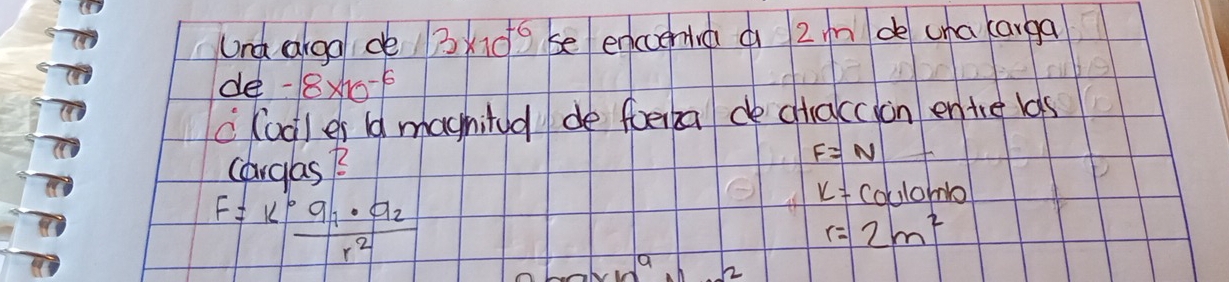 Una carga de 3x10⁻⁶ se encuentra a 2m de una carga
de -8x10⁻⁶
¿Cuál es la magnitud de fuerza de atracción entre las
cargas?
F= N
K= Coulomb
F= K° q₁ • q₂
r²
r= 2m²